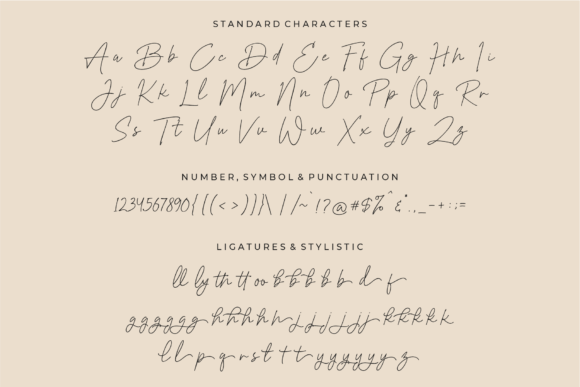 STANDARD CHARACTERS
Aa Bb Cc Dd Ee Ff Gg Hh Ii
Jj Kk Ll Mm Nn Oo Pp Qq Rr
Ss Tt Uu Vv Ww Xx Yy Zz
NUMBER, SYMBOL & PUNCTUATION
1234567890{[(<>)]}\|/~`!?@#$%^&*.,_-+:;=
LIGATURES & STYLISTIC
ll ly th tt oo b b b b b d f
g g g g g g h h h h h j j j j j k k k k k
l l p q r s t t t y y y y y y z